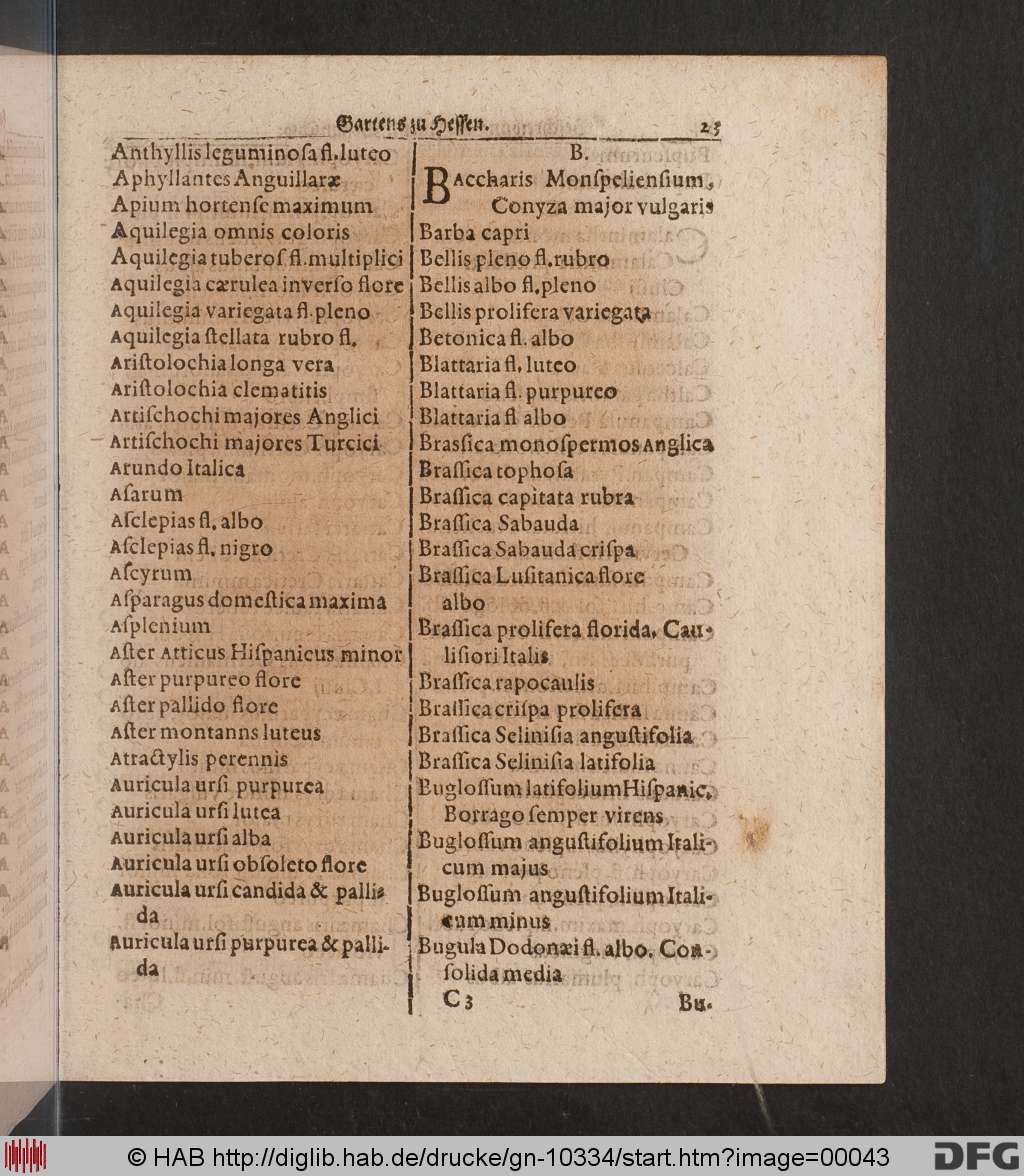 Gartens zu Hessen. 23
Anthyllis leguminoſa fl. luteo
Aphyllantes Anguillaræ
Apium hortenſe maximum
Aquilegia omnis coloris
Aquilegia tuberoſ fl. multiplici
Aquilegia cærulea inverſo flore
Aquilegia variegata fl. pleno
Aquilegia ſtellata rubro fl.
Ariſtolochia longa vera
Ariſtolochia clematitis
Artiſchochi majores Anglici
Artiſchochi majores Turcici
Arundo Italica
Aſarum
Aſclepias fl. albo
Aſclepias fl. nigro
Aſcyrum
Aſparagus domeſtica maxima
Aſplenium
Aſter Atticus Hiſpanicus minor
Aſter purpureo flore
Aſter pallido flore
Aſter montanns luteus
Atractylis perennis
Auricula urſi purpurea
Auricula urſi lutea
Auricula urſi alba
Auricula urſi obſoleto flore
Auricula urſi candida & palli-
da
Auricula urſi purpurea & palli-
da
B.
BAccharis Monſpelienſium,
Conyza major vulgaris
Barba capri
Bellis pleno fl. rubro
Bellis albo fl. pleno
Bellis prolifera variegata
Betonica fl. albo
Blattaria fl. luteo
Blattaria fl. purpureo
Blattaria fl albo
Brasſica monoſpermos Anglica
Braſſica tophoſa
Braſſica capitata rubra
Braſſica Sabauda
Braſſica Sabauda criſpa
Braſſica Luſitanica flore
albo
Braſſica prolifera florida. Cau-
liſiori Italis
Braſſica rapocaulis
Braſſica criſpa prolifera
Braſſica Seliniſia anguſtifolia
Braſſica Seliniſia latifolia
Bugloſſum latifolium Hiſpanic.
Borrago ſemper virens
Bugloſſum anguſtifolium Itali-
cum majus
Bugloſſum anguſtifolium Itali-
cum minus
Bugula Dodonæi fl. albo. Con-
ſolida media
C 3 Bu-
© HAB http://diglib.hab.de/drucke/gn-10334/start.htm?image=00043
DFG